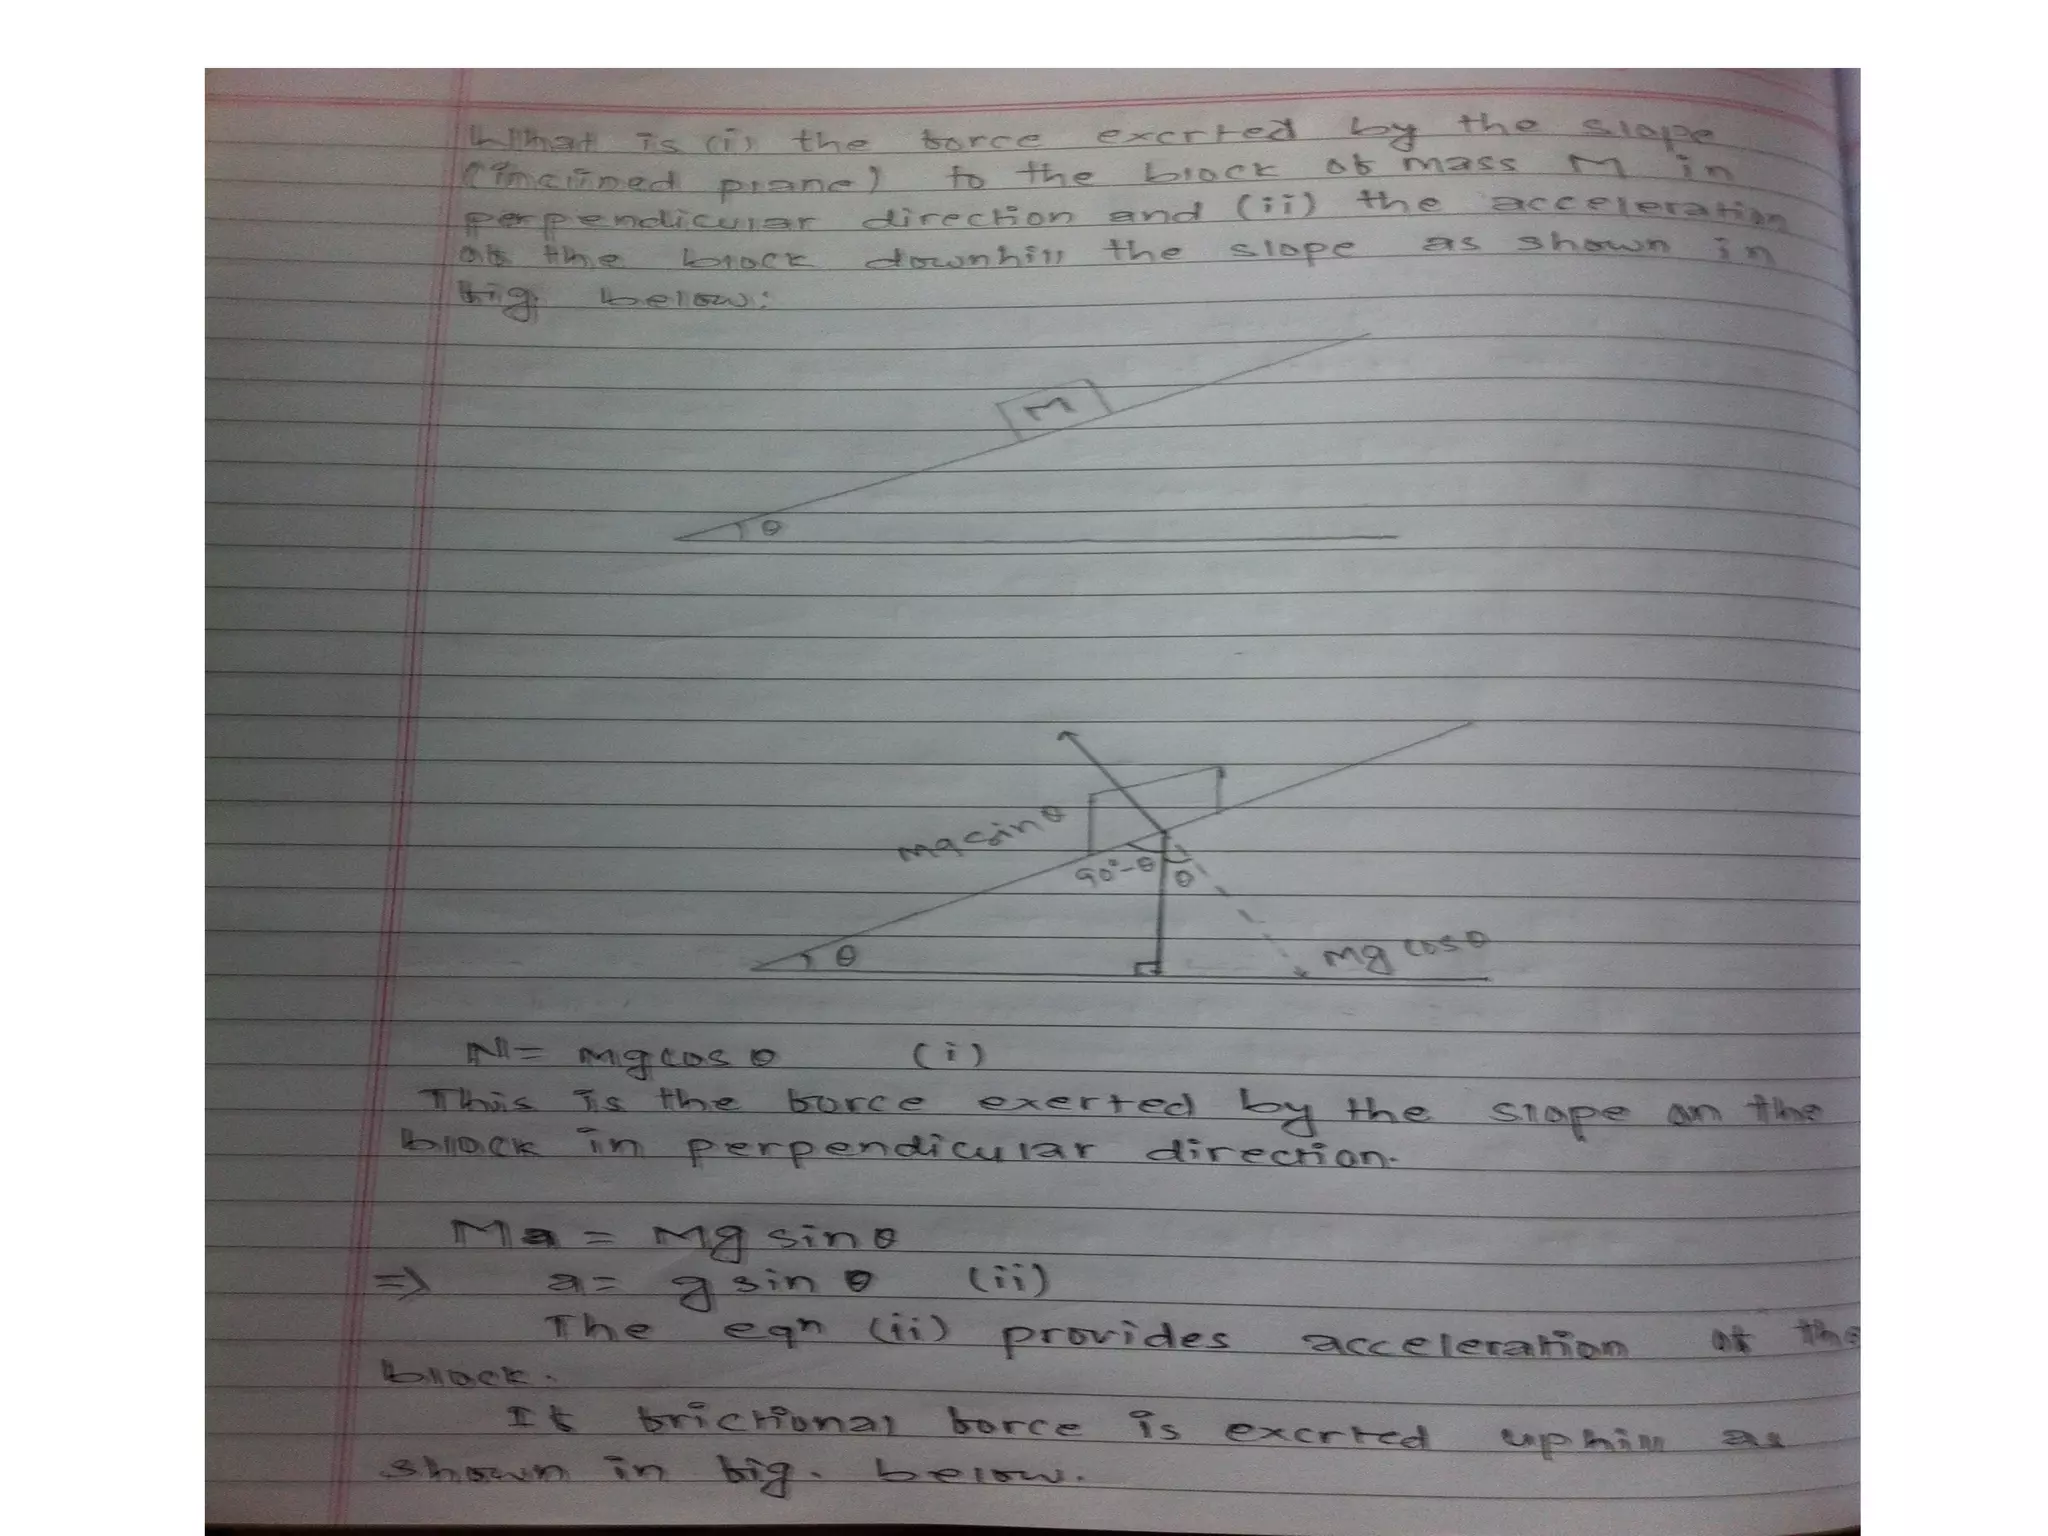 What is (i) the force exerted by the slope
(inclined plane) to the block of mass M in
perpendicular direction and (ii) the acceleration
of the block downhill the slope as shown in
fig. below:
M
θ
Mg sinθ
90°-θ θ
θ
Mg cosθ
N = Mg cos θ (i)
This is the force exerted by the slope on the
block in perpendicular direction.
Ma = Mg sin θ
⇒ a = g sin θ (ii)
The eqn (ii) provides acceleration of the
block.
If frictional force is exerted uphill as
shown in fig. below.